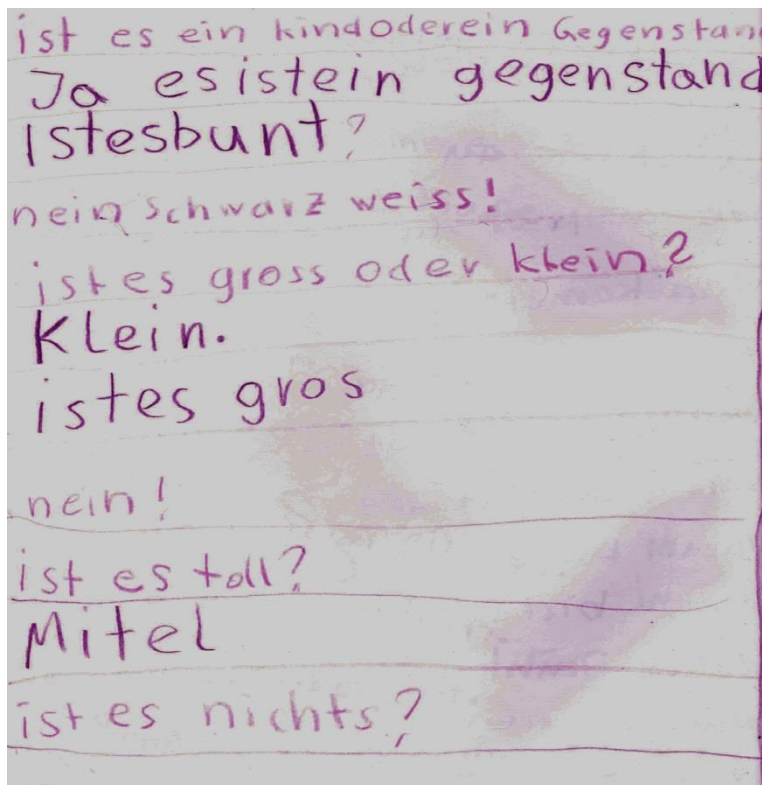 ist es ein kindoderein Gegenstan
Ja esistein gegenstand
Istesbunt?
nein schwarz weiss!
istes gross oder klein?
Klein.
istes gros
nein!
ist es toll?
Mitel
ist es nichts?